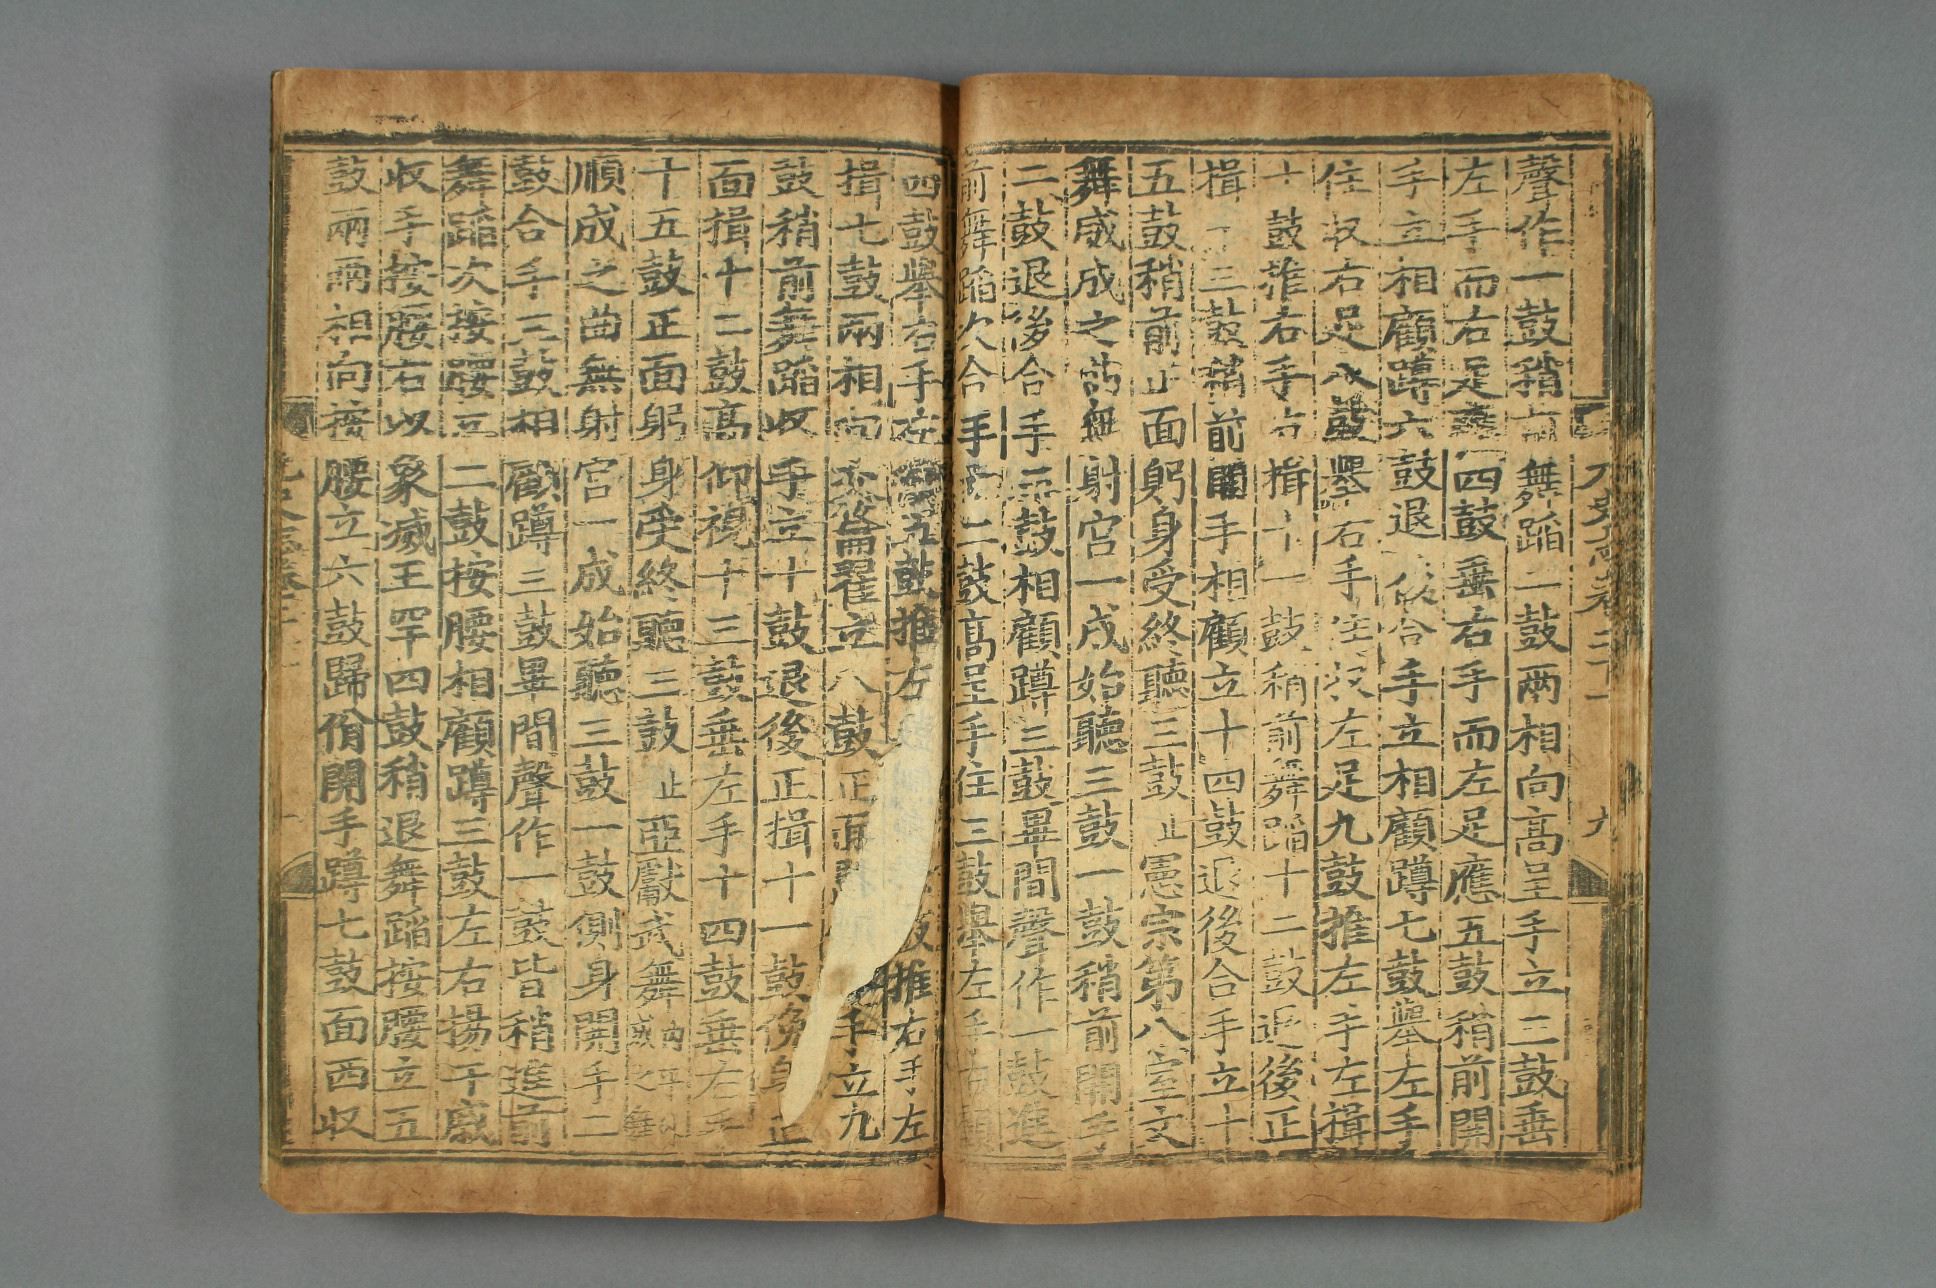 聲作一鼓稍前舞蹈二鼓兩相向高呈手立三鼓垂
左手而右足應四鼓垂右手而左足應五鼓稍前開
手立相顧蹲六鼓退後合手立相顧蹲七鼓舉左手
住收右足八鼓舉右手住收左足九鼓推左手左揖
十鼓推右手右揖十一鼓稍前舞蹈十二鼓退後正
揖十三鼓稍前開手相顧立十四鼓退後合手立十
五鼓稍前正面躬身受終聽三鼓止憲宗第八室文
舞咸成之曲無射宮一成始聽三鼓一鼓稍前開手
二鼓退後合手三鼓相顧蹲三鼓畢間聲作一鼓進
前舞蹈次合手立二鼓高呈手住三鼓舉左手右顧
四鼓舉右手左顧五鼓推左 鼓推右手左
揖七鼓兩相向交籥翟立八鼓正面 手立九
鼓稍前舞蹈收手立十鼓退後正揖十一鼓俛身正
面揖十二鼓高仰視十三鼓垂左手十四鼓垂右手
十五鼓正面躬身受終聽三鼓止亞獻武舞內平外
成之舞
順成之曲無射宮一成始聽三鼓一鼓側身開手二
鼓合手三鼓相顧蹲三鼓畢間聲作一鼓皆稍進前
舞蹈次按腰立二鼓按腰相顧蹲三鼓左右揚干戚
收手按腰右以象滅王罕四鼓稍退舞蹈按腰立五
鼓兩兩相向按腰立六鼓歸佾開手蹲七鼓面西收
元史志卷二十一
九